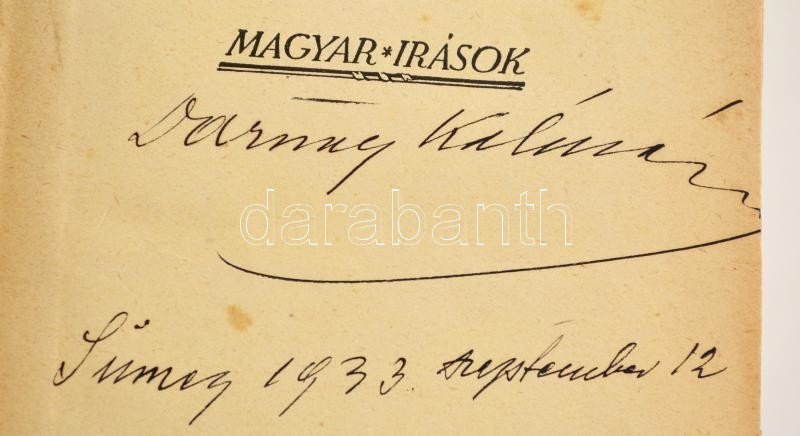 MAGYAR * IRÁSOK
Darnay Kálmán
darabanth
Sümeg 1933. szeptember 12